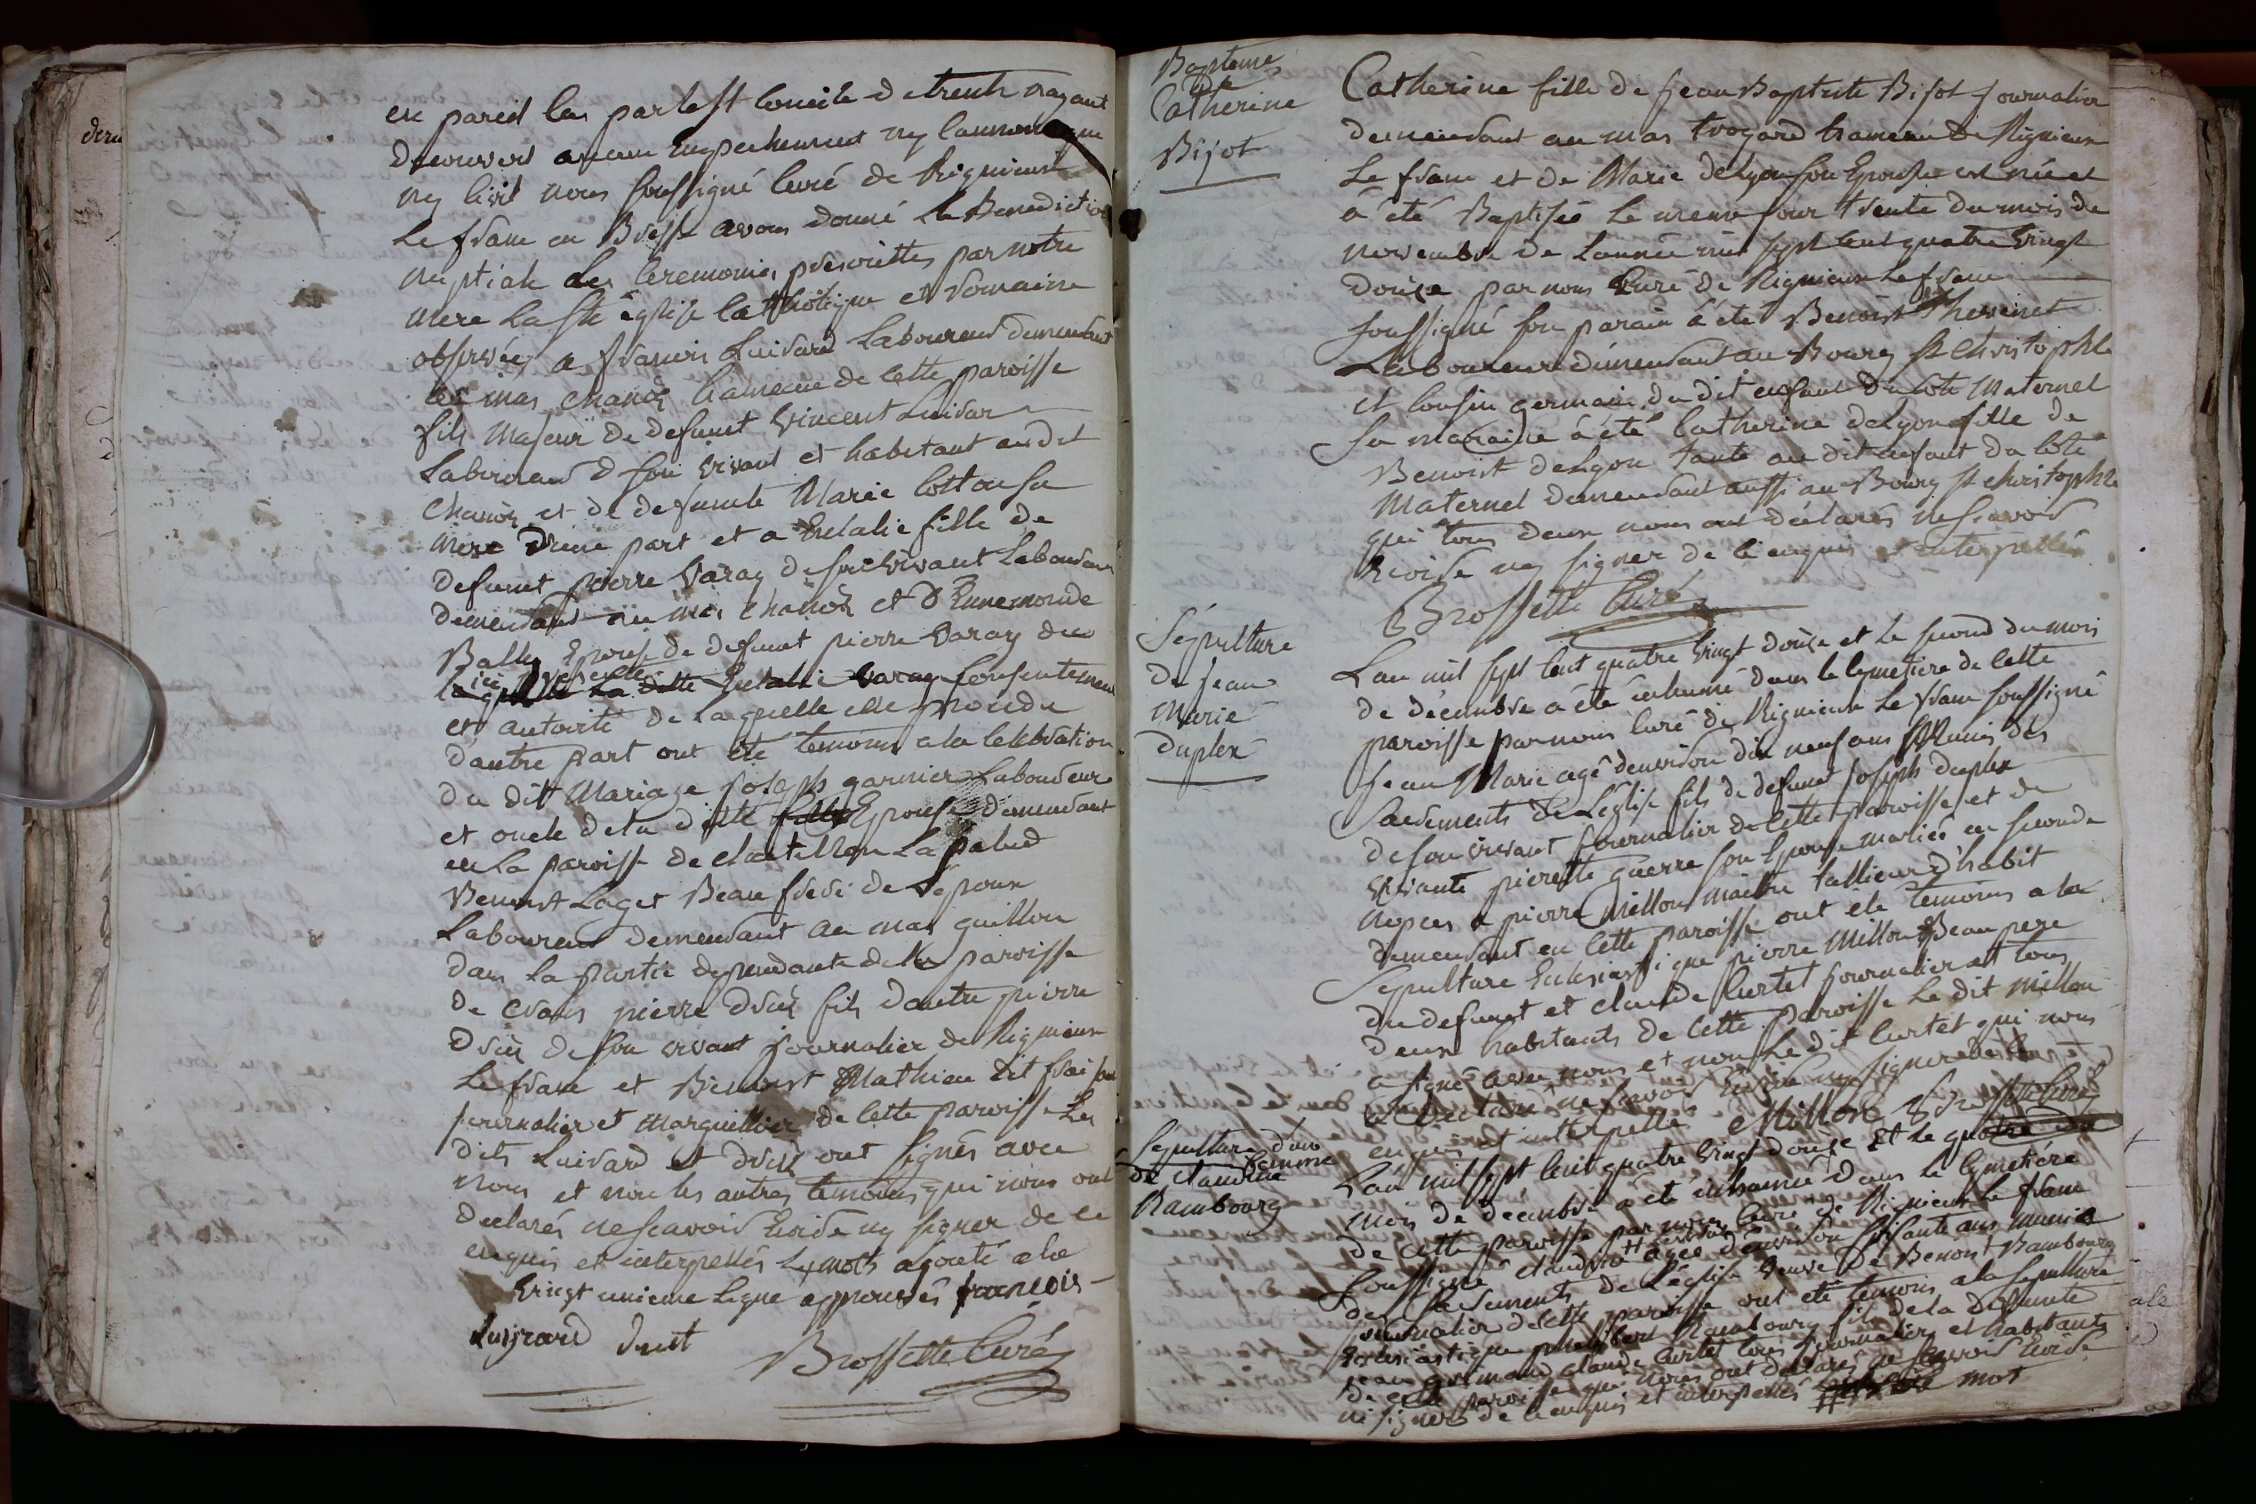 en pareil cas par le St Concile de trente nayant
decouvert aucun Empechement ny Canonique
ny Civil nous soussigné Curé de Rignieux
Le franc en Bresse avons donné La Benediction
nuptiale Les Ceremonies prescrittes par notre
mere La Ste église Catholique et romaine
observées a francois Luisard Laboureur demeurant
au mas chanoz hameau de Cette paroisse
fils majeur de defunt Vincent Luisard
Laboureur de son vivant et habitant au dit
Chanoz et de defunte Marie Cotton sa
mere D'une part et a Eulalie fille de
defunt pierre Varay de son vivant Laboureur
demeurant au mas chanoz et D'Ennemonde
Bally Epouse de defunt pierre Varay du
consentement
et autorité de Laquelle elle procede
d'autre part ont été temoins a la Celebration
du dit Mariage joseph garnier Laboureur
et oncle de la ditte Epouse demeurant
en La paroisse de chatillon La palud
Benoist Laget Beau frere de L'epoux
Laboureur demeurant au mas guillon
dans La partie dependante de la paroisse
de Crans pierre Druet fils d'autre pierre
Druet de son vivant journalier de Rignieux
Le franc et Benoist Mathieu dit
journalier et Marguillier de Cette paroisse Les
dits Luisard et Druet ont signés avec
nous et non les autres temoins qui nous ont
declarés ne scavoir Ecrire ny signer de ce
enquis et interpellés Les mots agouté a la
Vingt unieme Ligne approuvés francois
Luisrard druet
Brossette Curé
Bapteme
de
Catherine
Bijot
Catherine fille de jean Baptiste Bijot journalier
demeurant au mas trogard hameau de Rignieux
Le franc et de Marie de Lyon son Epouse est née et
à été Baptisée Le meme jour trente du mois de
novembre de L'année mil sept Cent quatre Vingt
douze par nous Curé de Rignieux Le franc
soussigné son parain à été Benoist Thevenet
Laboureur demeurant au Bourg St Christophle
et Cousin germain du dit enfant du Coté Maternel
sa maraine à été Catherine de Lyon fille de
Benoist de Lyon tante au dit enfant du Coté
Maternel demeurant aussi au Bourg St christophle
qui tous deux nous ont déclarés ne scavoir
Ecrire ny signer de ce enquis et interpellés
Brossette Curé
Sépulture
de jean
Marie
duplex
L'an mil sept Cent quatre Vingt douze et Le second du mois
de décembre à été inhumé dans le Cymetiere de Cette
paroisse par nous Curé de Rignieux Le franc soussigné
jean Marie agé d'environ dix neuf ans Munis des
Sacrements de L'église fils de defunt joseph duplex
de son vivant journalier de Cette paroisse et de
vivante pierrette guerre son Epouse mariée en seconde
nopces a pierre Millon maitre tallieur d'habit
demeurant en Cette paroisse ont été temoins a la
sepulture Eclesiastique pierre Millon Beau pere
du defunt et claude Curtet journalier et tous
deux habitants de Cette paroisse Le dit Millon
a signé avec nous et non Le dit Curtet qui nous
a declaré ne scavoir Ecrire ny signer de ce
enquis et interpellé Millon Brossette Curé
Sepulture d'une
femme
de Claudine
Rambourg
L'an mil sept Cent quatre Vingt douze Et Le quatre du
mois de décembre a été inhumée Dans Le Cymetiére
de Cette paroisse par nous Curé de Rignieux Le franc
soussigné claudine agée d'environ soisante ans munie
des Sacrements de L'église Veuve de Benoist Rambourg
journalier de Cette paroisse ont été temoins a la sepulture
Eclesiastique philibert Rambourg fils de la defunte
jean grimand claude Curtet tous journaliers et habitants
de Cette paroisse qui nous ont declarés ne scavoir Ecrire
ni signer de ce enquis et interpellés mot